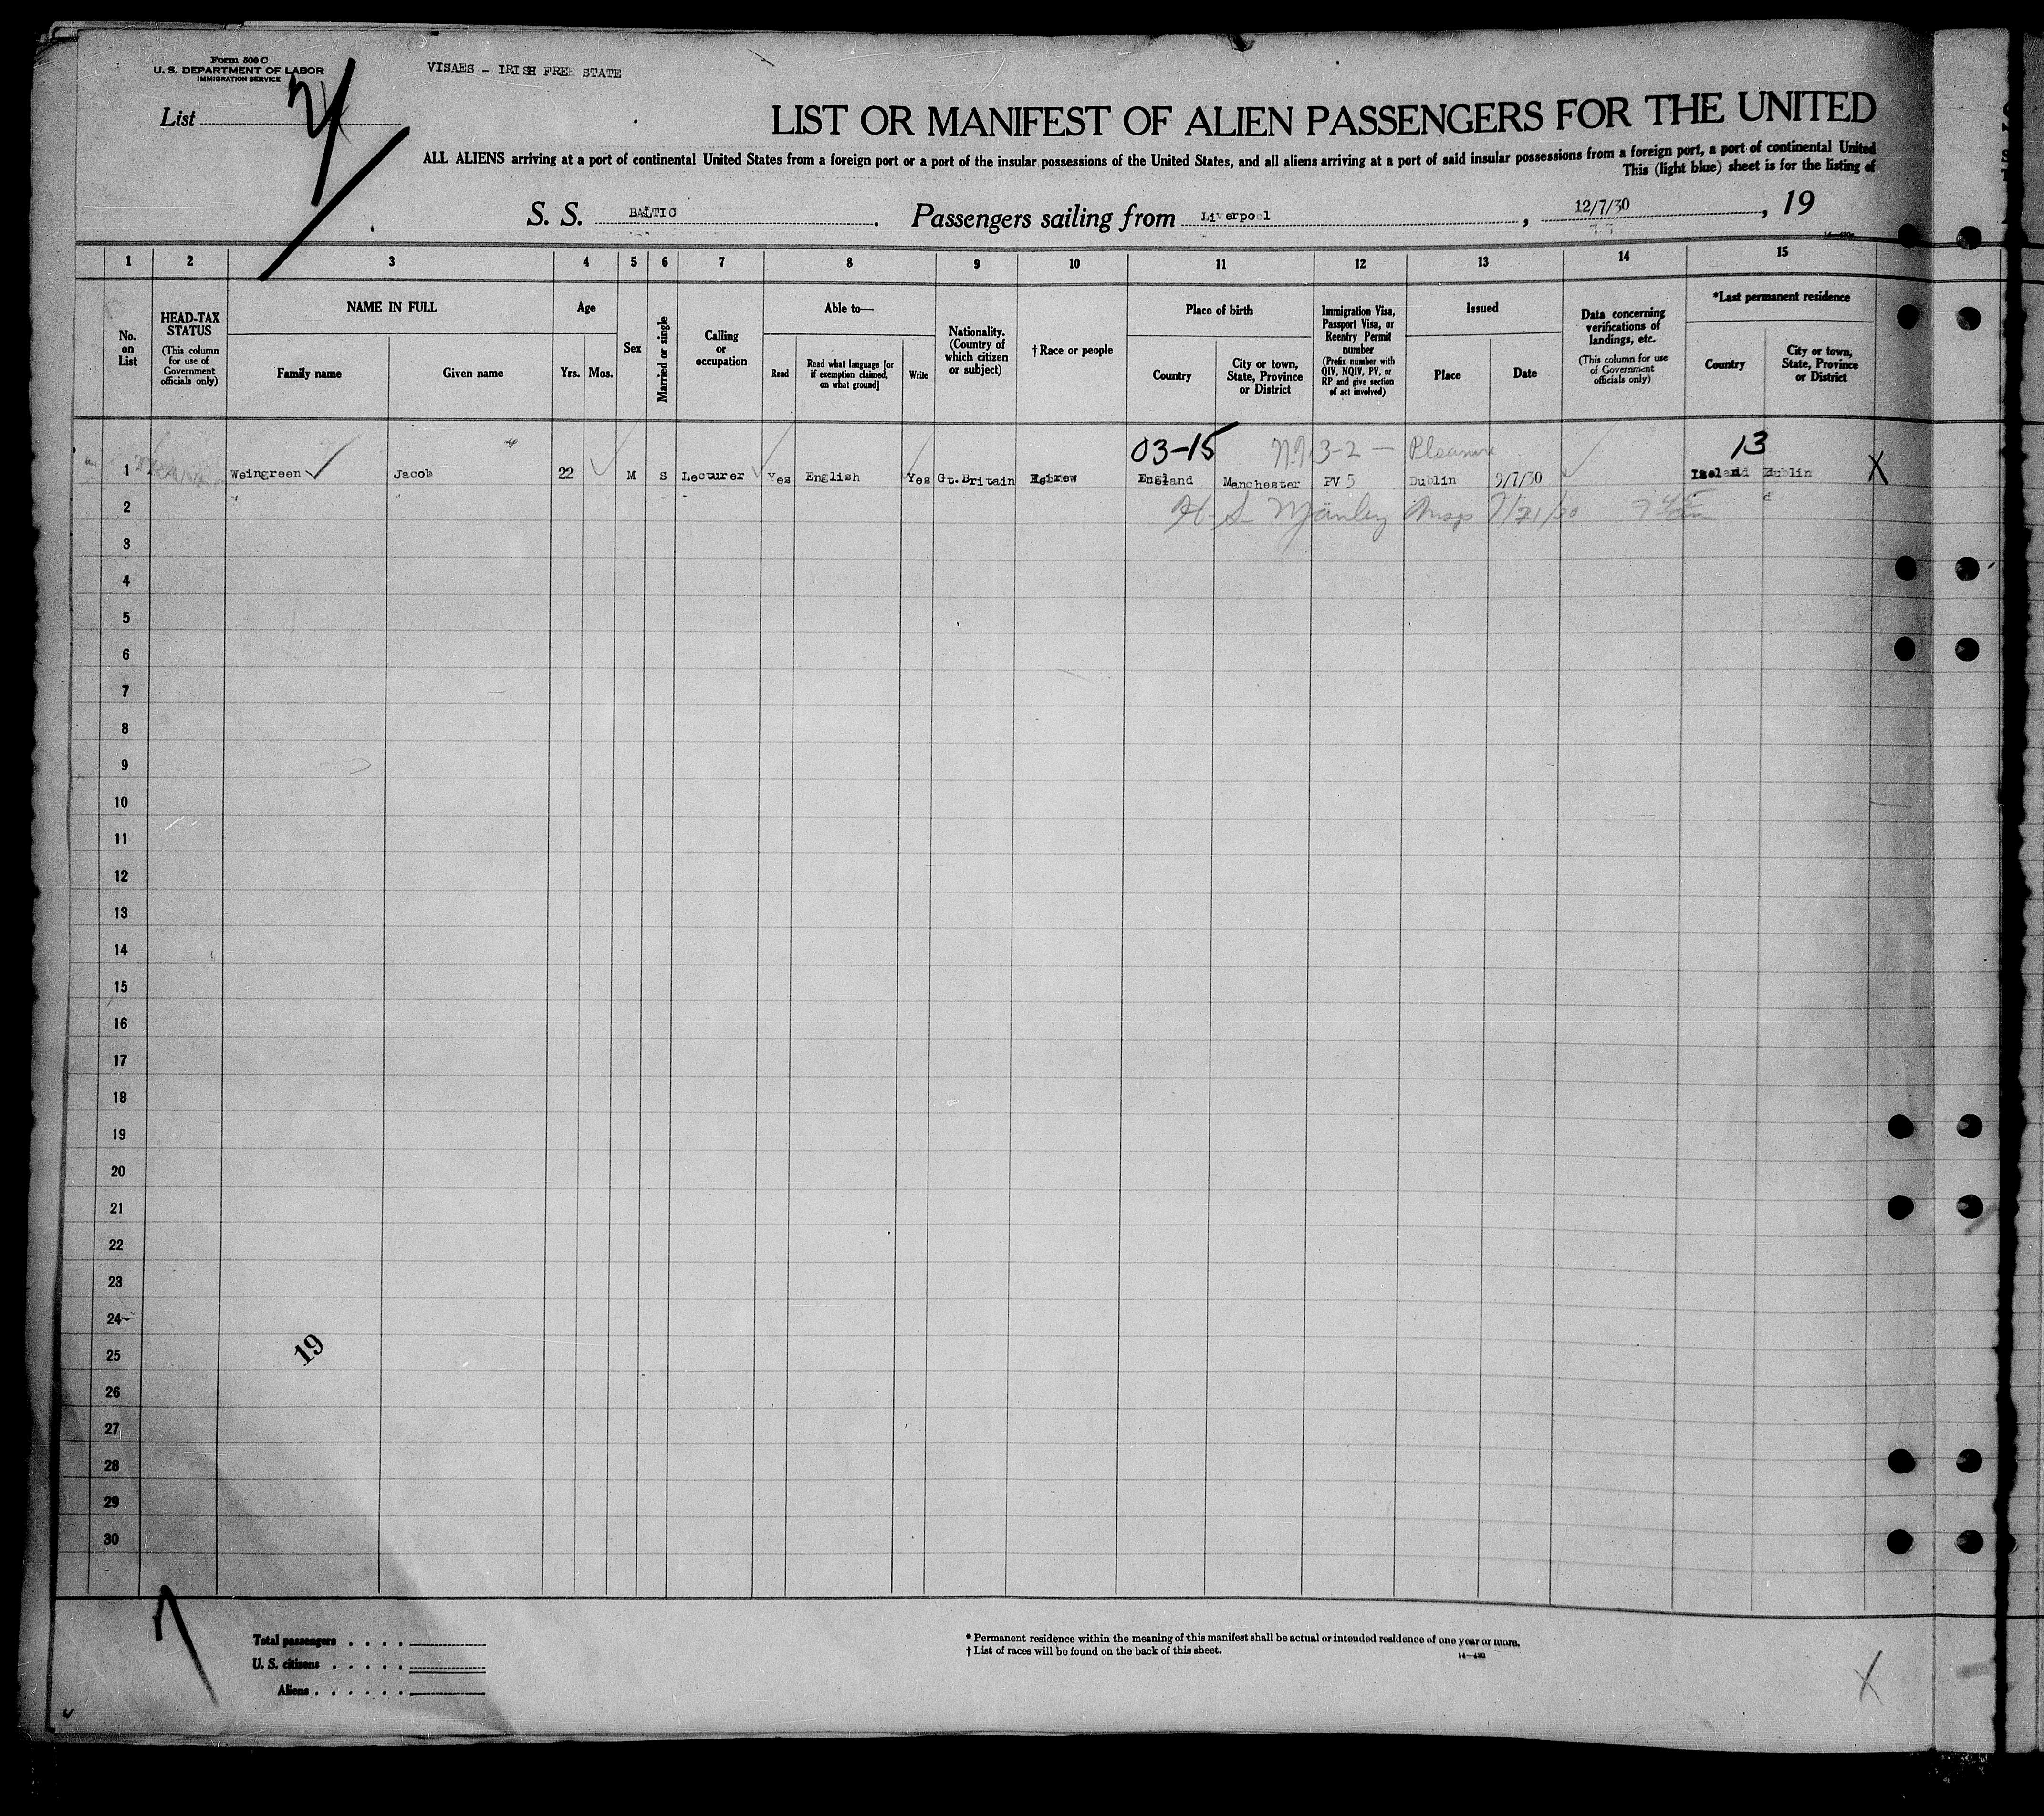 Form 500 C
U. S. DEPARTMENT OF LABOR
IMMIGRATION SERVICE
VISAES - IRISH FREE STATE
List
LIST OR MANIFEST OF ALIEN PASSENGERS FOR THE UNITED
ALL ALIENS arriving at a port of continental United States from a foreign port or a port of the insular possessions of the United States, and all aliens arriving at a port of said insular possessions from a foreign port, a port of continental United
This (light blue) sheet is for the listing of
S. S. BALTIC. Passengers sailing from Liverpool, 12/7/30, 19
1 2 3 4 5 6 7 8 9 10 11 12 13 14 15
No. on List
HEAD-TAX STATUS
(This column for use of Government officials only)
NAME IN FULL
Family name Given name
Age
Yrs. Mos.
Sex
Married or single
Calling or occupation
Able to—
Read
Read what language [or if exemption claimed, on what ground]
Write
Nationality. (Country of which citizen or subject)
†Race or people
Place of birth
Country
City or town, State, Province or District
Immigration Visa, Passport Visa, or Reentry Permit number
(Prefix number with QIV, NQIV, PV, or RP and give section of act involved)
Issued
Place Date
Data concerning verifications of landings, etc.
(This column for use of Government officials only)
*Last permanent residence
Country
City or town, State, Province or District
03-15 3-2 - Pleasure 13
1 Weingreen Jacob 22 M S Lecturer Yes English Yes Gt.Britain Hebrew England Manchester PV 5 Dublin 9/7/30 Ireland Dublin X
2 H. S. Manley Insp 7/21/30
3
4
5
6
7
8
9
10
11
12
13
14
15
16
17
18
19
20
21
22
23
24
25
26
27
28
29
30
19
Total passengers . . . .
U. S. citizens . . . . .
Aliens . . . . . .
* Permanent residence within the meaning of this manifest shall be actual or intended residence of one year or more.
† List of races will be found on the back of this sheet.
14—430
X